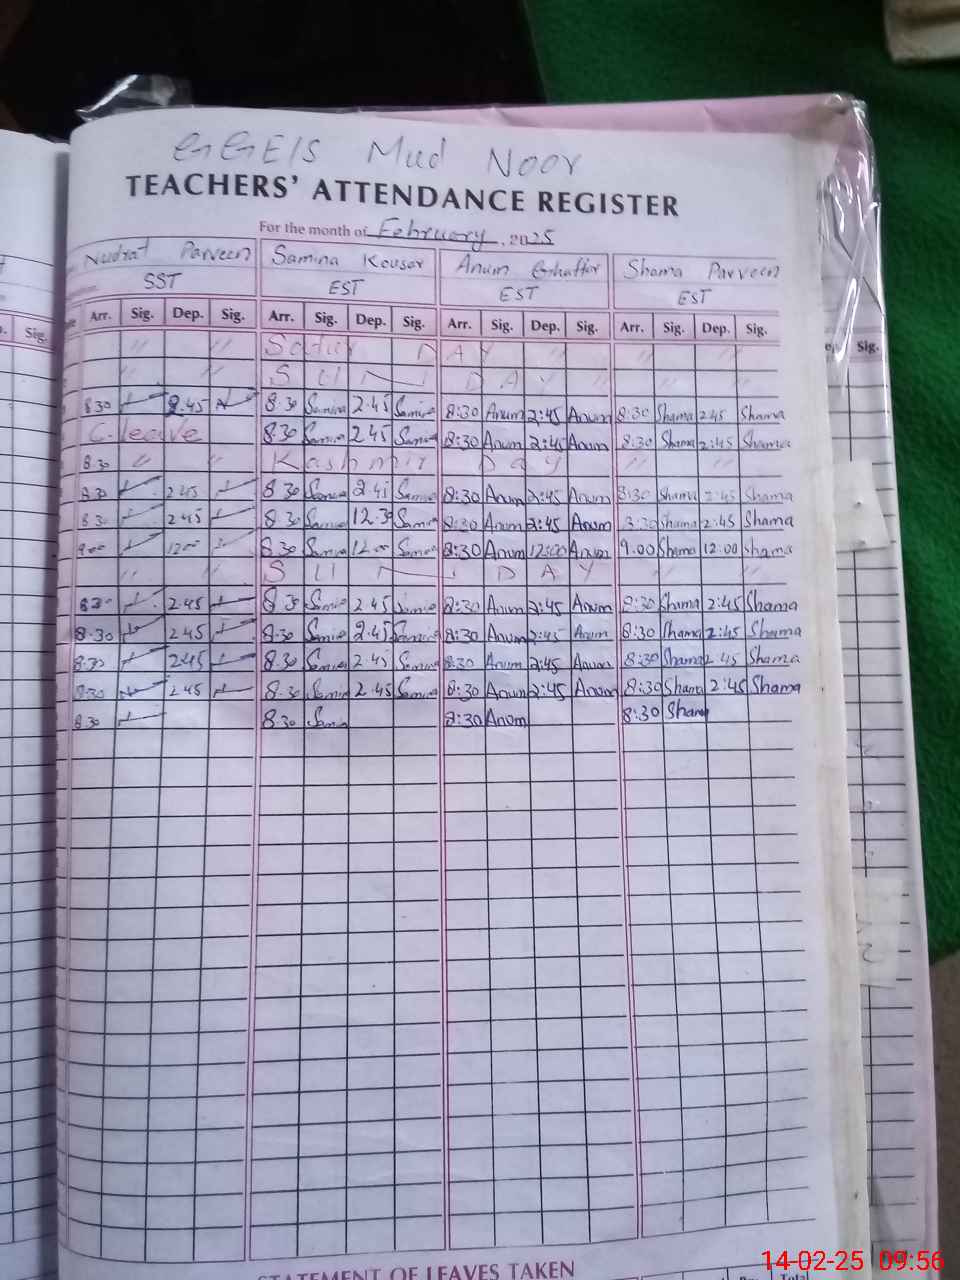 GGEIS Mud Noor
TEACHERS' ATTENDANCE REGISTER
For the month of February, 2025
Nudrat Parveen Samina Kousar Anum Ghaffar Shama Parveen
SST EST EST EST
Arr. Sig. Dep. Sig. Arr. Sig. Dep. Sig. Arr. Sig. Dep. Sig. Arr. Sig. Dep. Sig.
" " Satur DAY " " "
" " SUNDAY " " " "
8.30 2.45 8.30 Samina 2.45 Samina 8:30 Anum 2:45 Anum 8:30 Shama 2:45 Shama
C.leave 8.30 Samina 2.45 Samina 8:30 Anum 2:45 Anum 8:30 Shama 2:45 Shama
8.30 " " Kashmir Day " " " "
8.30 2.45 8.30 Samina 2.45 Samina 8:30 Anum 2:45 Anum 8:30 Shama 2:45 Shama
8.30 2.45 8.30 Samina 12.30 Samina 8:30 Anum 2:45 Anum 8:30 Shama 2:45 Shama
9.00 12.00 8.30 Samina 12.00 Samina 8:30 Anum 12:00 Anum 9.00 Shama 12:00 Shama
" " SUNDAY " "
8.30 2.45 8.30 Samina 2.45 Samina 8:30 Anum 2:45 Anum 8:30 Shama 2:45 Shama
8.30 2.45 8.30 Samina 2.45 Samina 8:30 Anum 2:45 Anum 8:30 Shama 2:45 Shama
8.30 2.45 8.30 Samina 2.45 Samina 8:30 Anum 2:45 Anum 8:30 Shama 2:45 Shama
8.30 2.45 8.30 Samina 2.45 Samina 8:30 Anum 2:45 Anum 8:30 Shama 2:45 Shama
8.30 8.30 Samina 8:30 Anum 8:30 Sham
STATEMENT OF LEAVES TAKEN
Total
Sig.
Sig.
14-02-25 09:56